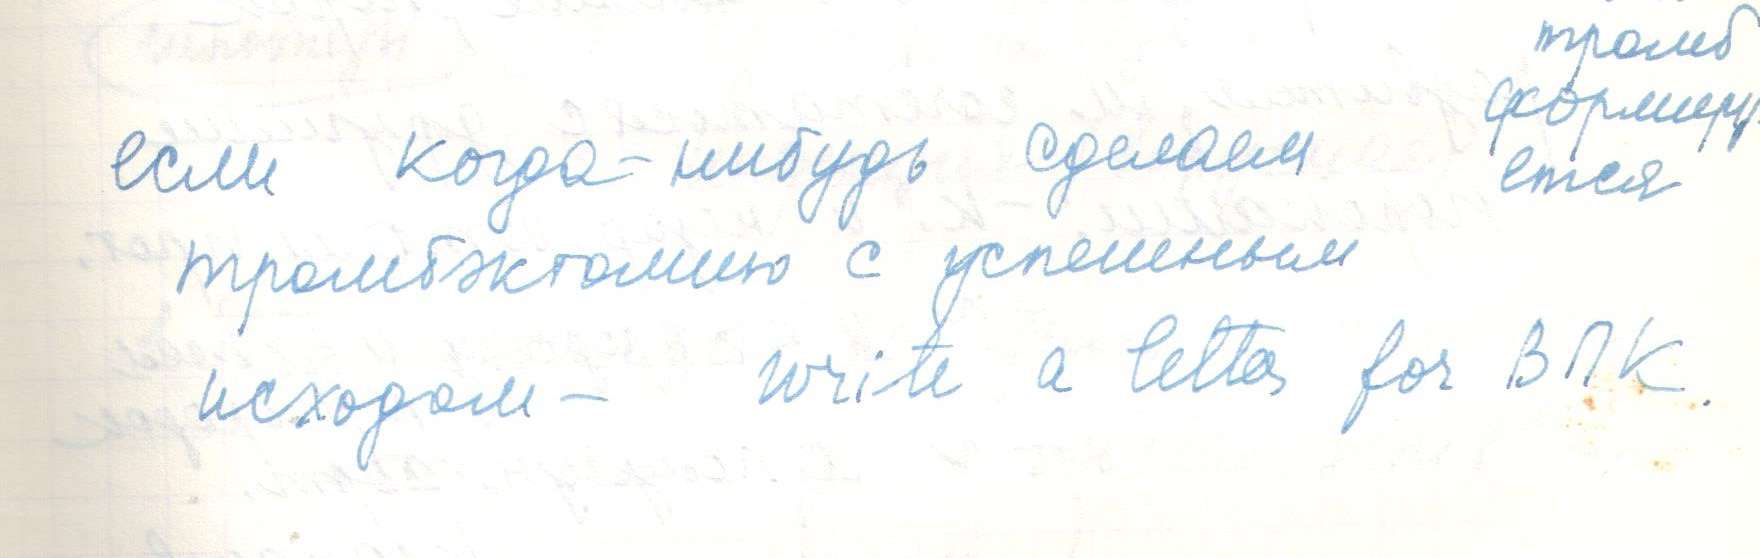 тромб
формиру
ется
если когда-нибудь сделаем
тромбэктомию с успешным
исходом - write a letter for ВПК.